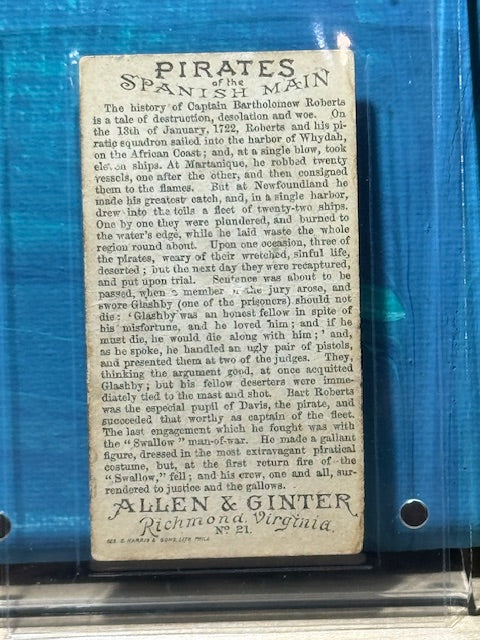 PIRATES
of the
SPANISH MAIN
The history of Captain Bartholomew Roberts
is a tale of destruction, desolation and woe. On
the 13th of January, 1722, Roberts and his pi-
ratic squadron sailed into the harbor of Whydah,
on the African Coast; and, at a single blow, took
eleven ships. At Martanique, he robbed twenty
vessels, one after the other, and then consigned
them to the flames. But at Newfoundland he
made his greatest catch, and, in a single harbor,
drew into the toils a fleet of twenty-two ships.
One by one they were plundered, and burned to
the water's edge, while he laid waste the whole
region round about. Upon one occasion, three of
the pirates, weary of their wretched, sinful life,
deserted; but the next day they were recaptured,
and put upon trial. Sentence was about to be
passed, when a member of the jury arose, and
swore Glashby (one of the prisoners) should not
die: 'Glashby was an honest fellow in spite of
his misfortune, and he loved him; and if he
must die, he would die along with him;' and,
as he spoke, he handled an ugly pair of pistols,
and presented them at two of the judges. They,
thinking the argument good, at once acquitted
Glashby; but his fellow deserters were imme-
diately tied to the mast and shot. Bart Roberts
was the especial pupil of Davis, the pirate, and
succeeded that worthy as captain of the fleet.
The last engagement which he fought was with
the "Swallow" man-of-war. He made a gallant
figure, dressed in the most extravagant piratical
costume, but, at the first return fire of the
"Swallow," fell; and his crew, one and all, sur-
rendered to justice and the gallows.
ALLEN & GINTER
Richmond, Virginia.
No 21.
GEO. S. HARRIS & SONS, LITH. PHILA.